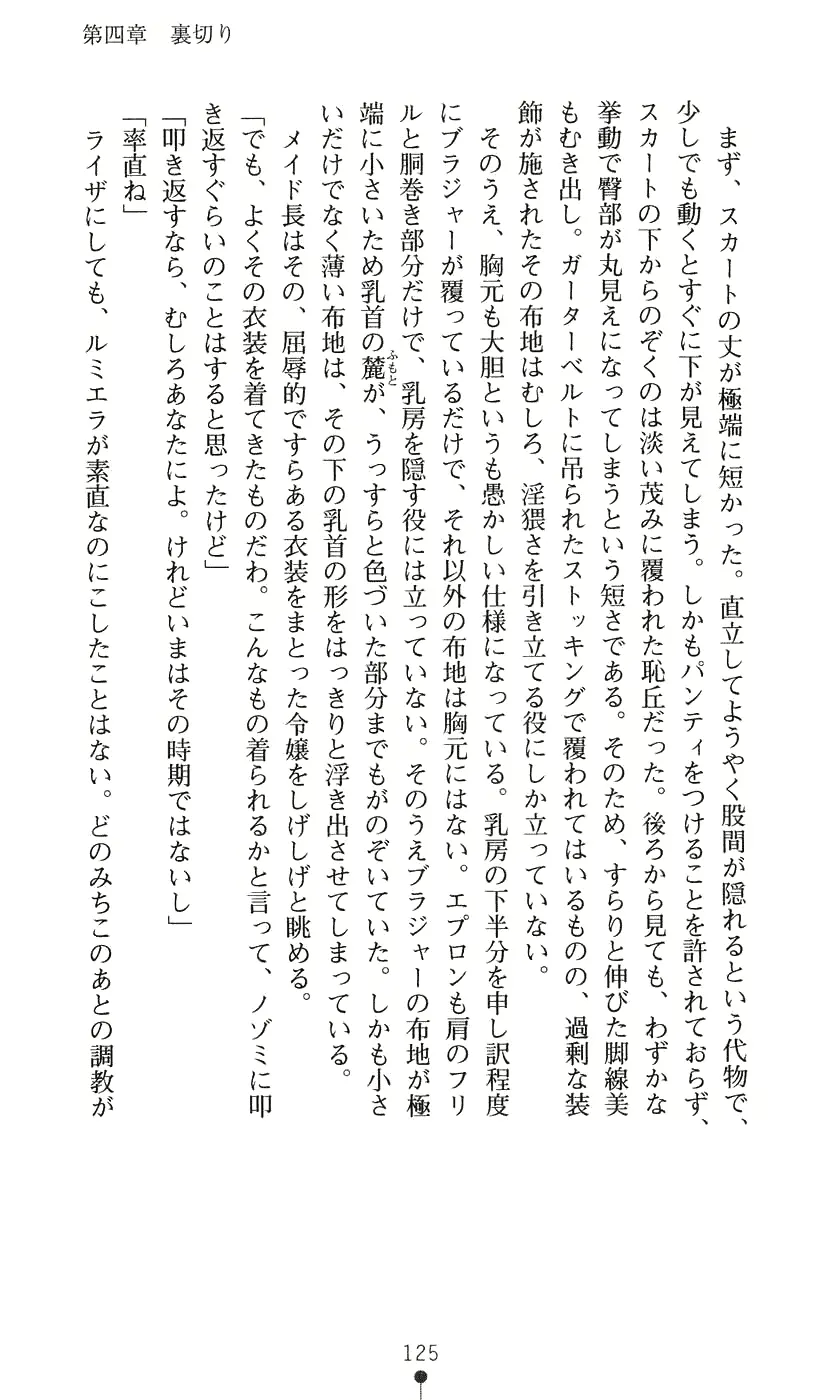 第四章　裏切り
まず、スカートの丈が極端に短かった。直立してようやく股間が隠れるという代物で、
少しでも動くとすぐに下が見えてしまう。しかもパンティをつけることを許されておらず、
スカートの下からのぞくのは淡い茂みに覆われた恥丘だった。後ろから見ても、わずかな
挙動で臀部が丸見えになってしまうという短さである。そのため、すらりと伸びた脚線美
もむき出し。ガーターベルトに吊られたストッキングで覆われてはいるものの、過剰な装
飾が施されたその布地はむしろ、淫猥さを引き立てる役にしか立っていない。
そのうえ、胸元も大胆というも愚かしい仕様になっている。乳房の下半分を申し訳程度
にブラジャーが覆っているだけで、それ以外の布地は胸元にはない。エプロンも肩のフリ
ルと胴巻き部分だけで、乳房を隠す役には立っていない。そのうえブラジャーの布地が極
端に小さいため乳首の麓ふもとが、うっすらと色づいた部分までもがのぞいていた。しかも小さ
いだけでなく薄い布地は、その下の乳首の形をはっきりと浮き出させてしまっている。
メイド長はその、屈辱的ですらある衣装をまとった令嬢をしげしげと眺める。
「でも、よくその衣装を着てきたものだわ。こんなもの着られるかと言って、ノゾミに叩
き返すぐらいのことはすると思ったけど」
「叩き返すなら、むしろあなたによ。けれどいまはその時期ではないし」
「率直ね」
ライザにしても、ルミエラが素直なのにこしたことはない。どのみちこのあとの調教が
125